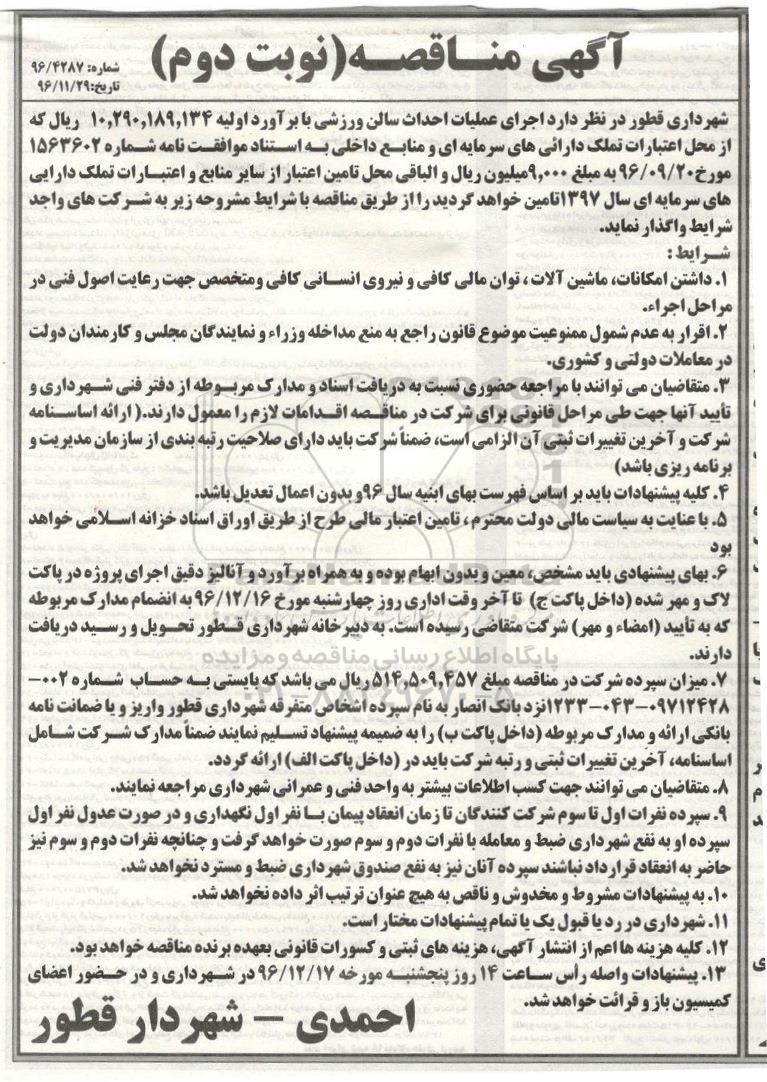 آگهی مناقصه(نوبت دوم)
شماره: ۹۶/۴۲۸۷
تاریخ: ۹۶/۱۱/۲۹
شهرداری قطور در نظر دارد اجرای عملیات احداث سالن ورزشی با برآورد اولیه ۱۰,۲۹۰,۱۸۹,۱۳۴ ریال که
از محل اعتبارات تملک دارائی های سرمایه ای و منابع داخلی به استناد موافقت نامه شماره ۱۵۶۳۶۰۲
مورخ ۹۶/۰۹/۲۰ به مبلغ ۹,۰۰۰میلیون ریال و الباقی محل تامین اعتبار از سایر منابع و اعتبارات تملک دارایی
های سرمایه ای سال ۱۳۹۷تامین خواهد گردید را از طریق مناقصه با شرایط مشروحه زیر به شرکت های واجد
شرایط واگذار نماید.
شرایط :
۱. داشتن امکانات، ماشین آلات ، توان مالی کافی و نیروی انسانی کافی ومتخصص جهت رعایت اصول فنی در
مراحل اجراء.
۲. اقرار به عدم شمول ممنوعیت موضوع قانون راجع به منع مداخله وزراء و نمایندگان مجلس و کارمندان دولت
در معاملات دولتی و کشوری.
۳. متقاضیان می توانند با مراجعه حضوری نسبت به دریافت اسناد و مدارک مربوطه از دفتر فنی شهرداری و
تأیید آنها جهت طی مراحل قانونی برای شرکت در مناقصه اقدامات لازم را معمول دارند.( ارائه اساسنامه
شرکت و آخرین تغییرات ثبتی آن الزامی است، ضمناً شرکت باید دارای صلاحیت رتبه بندی از سازمان مدیریت و
برنامه ریزی باشد)
۴. کلیه پیشنهادات باید بر اساس فهرست بهای ابنیه سال ۹۶و بدون اعمال تعدیل باشد.
۵. با عنایت به سیاست مالی دولت محترم ، تامین اعتبار مالی طرح از طریق اوراق اسناد خزانه اسلامی خواهد
بود
۶. بهای پیشنهادی باید مشخص، معین و بدون ابهام بوده و به همراه برآورد و آنالیز دقیق اجرای پروژه در پاکت
لاک و مهر شده (داخل پاکت ج) تا آخر وقت اداری روز چهارشنبه مورخ ۹۶/۱۲/۱۶ به انضمام مدارک مربوطه
که به تأیید (امضاء و مهر) شرکت متقاضی رسیده است. به دبیرخانه شهرداری قطور تحویل و رسید دریافت
دارند.
پایگاه اطلاع رسانی مناقصه و مزایده
۷. میزان سپرده شرکت در مناقصه مبلغ ۵۱۴,۵۰۹,۴۵۷ ریال می باشد که بایستی به حساب شماره ۰۰۲-
۱۲۳۳-۰۴۳-۰۹۷۱۲۴۲۸نزد بانک انصار به نام سپرده اشخاص متفرقه شهرداری قطور واریز و یا ضمانت نامه
۰۲۱-۸۸۳۴۹۶۷۰-۵
بانکی ارائه و مدارک مربوطه (داخل پاکت ب) را به ضمیمه پیشنهاد تسلیم نمایند ضمناً مدارک شرکت شامل
اساسنامه، آخرین تغییرات ثبتی و رتبه شرکت باید در (داخل پاکت الف) ارائه گردد.
۸. متقاضیان می توانند جهت کسب اطلاعات بیشتر به واحد فنی و عمرانی شهرداری مراجعه نمایند.
۹. سپرده نفرات اول تا سوم شرکت کنندگان تا زمان انعقاد پیمان با نفر اول نگهداری و در صورت عدول نفر اول
سپرده او به نفع شهرداری ضبط و معامله با نفرات دوم و سوم صورت خواهد گرفت و چنانچه نفرات دوم و سوم نیز
حاضر به انعقاد قرارداد نباشند سپرده آنان نیز به نفع صندوق شهرداری ضبط و مسترد نخواهد شد.
۱۰. به پیشنهادات مشروط و مخدوش و ناقص به هیچ عنوان ترتیب اثر داده نخواهد شد.
۱۱. شهرداری در رد یا قبول یک یا تمام پیشنهادات مختار است.
۱۲. کلیه هزینه ها اعم از انتشار آگهی، هزینه های ثبتی و کسورات قانونی بعهده برنده مناقصه خواهد بود.
۱۳. پیشنهادات واصله رأس ساعت ۱۴ روز پنجشنبه مورخه ۹۶/۱۲/۱۷ در شهرداری و در حضور اعضای
کمیسیون باز و قرائت خواهد شد.
احمدی - شهردار قطور